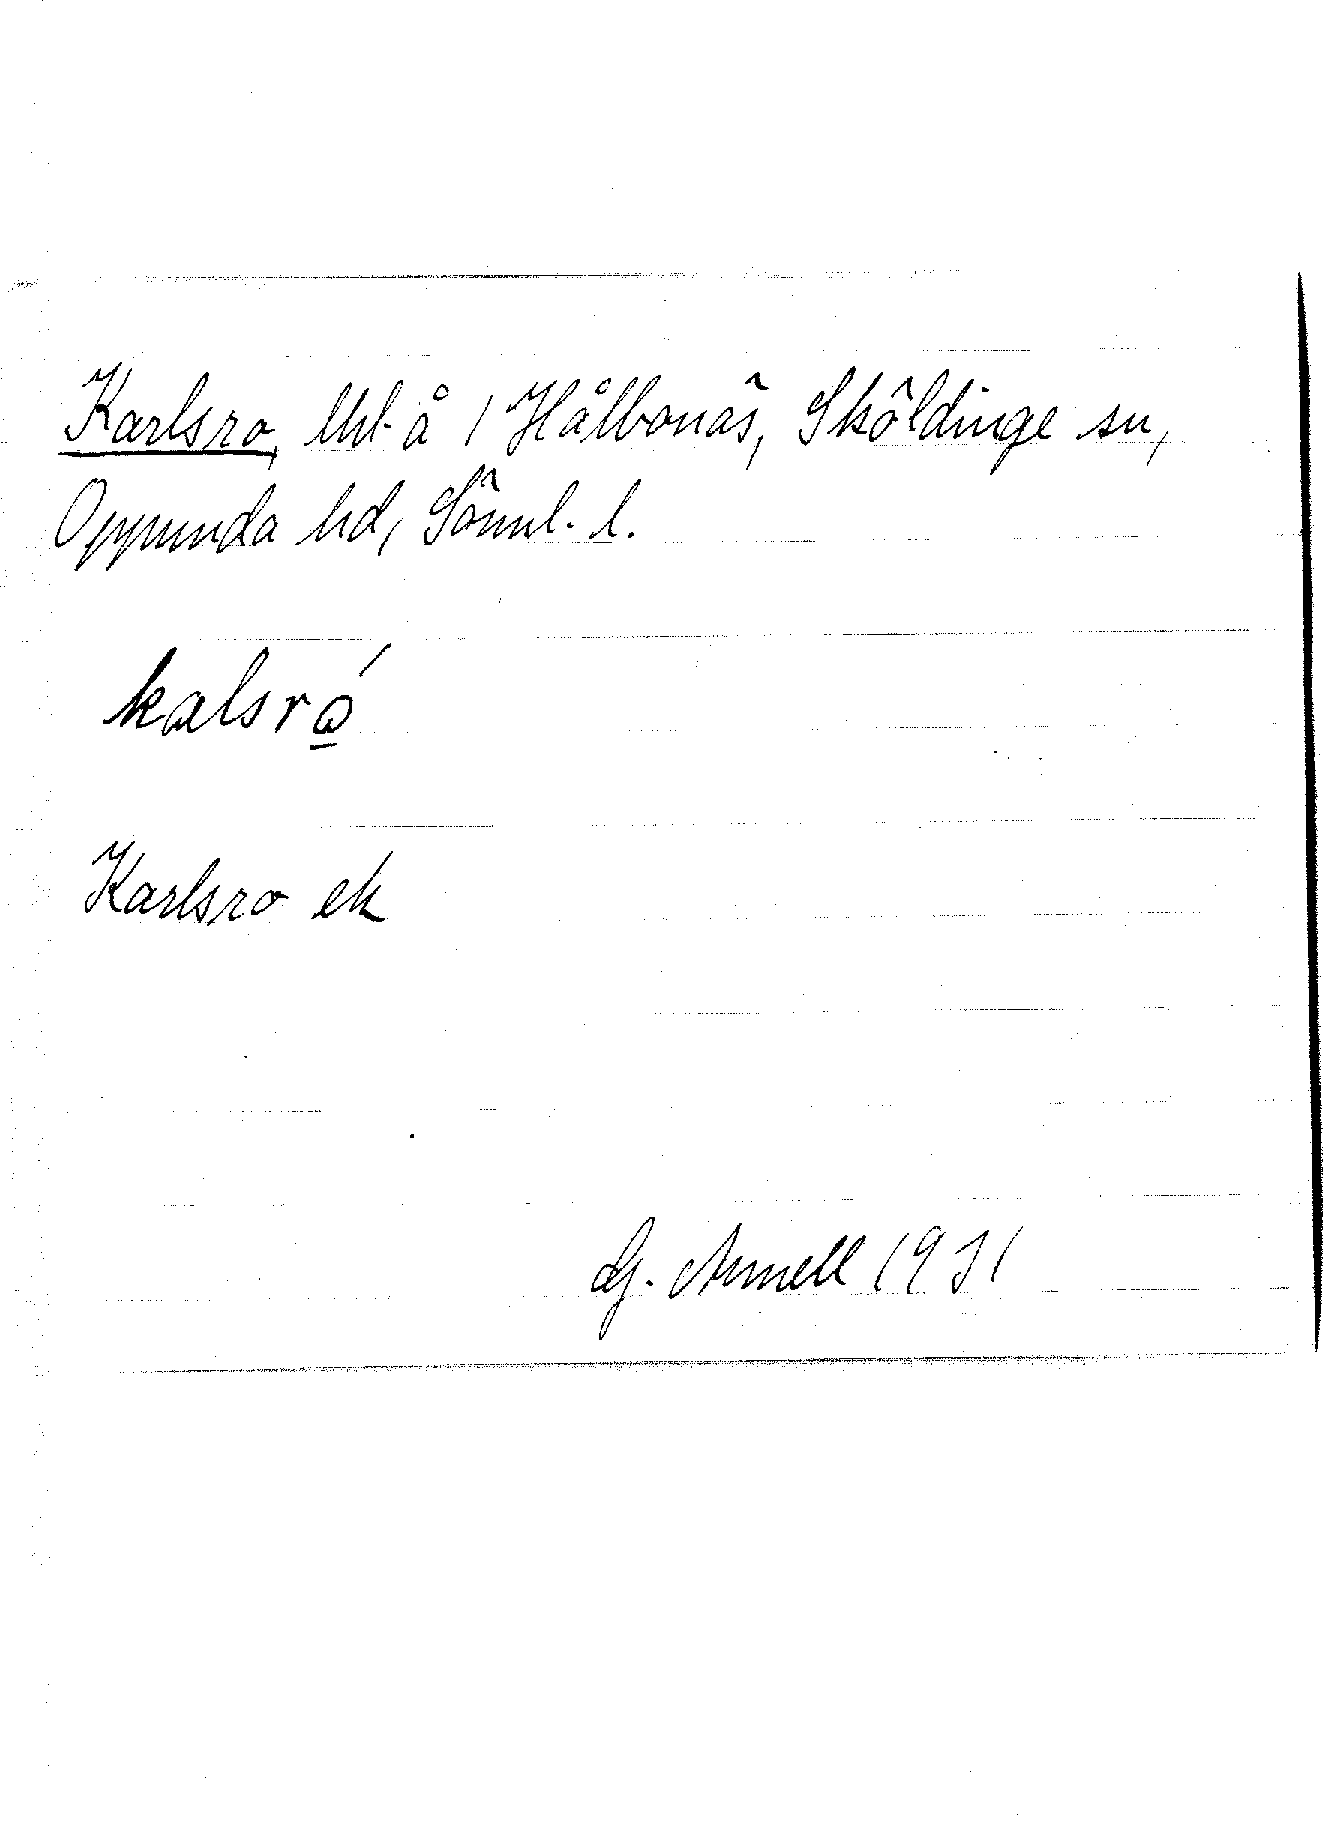 Karlsro, lht å 1 Hålbonäs, Sköldinge sn,
Oppunda hd, Söml. l.
kalsró̲
Karlsro ek
G. Arnell 1931